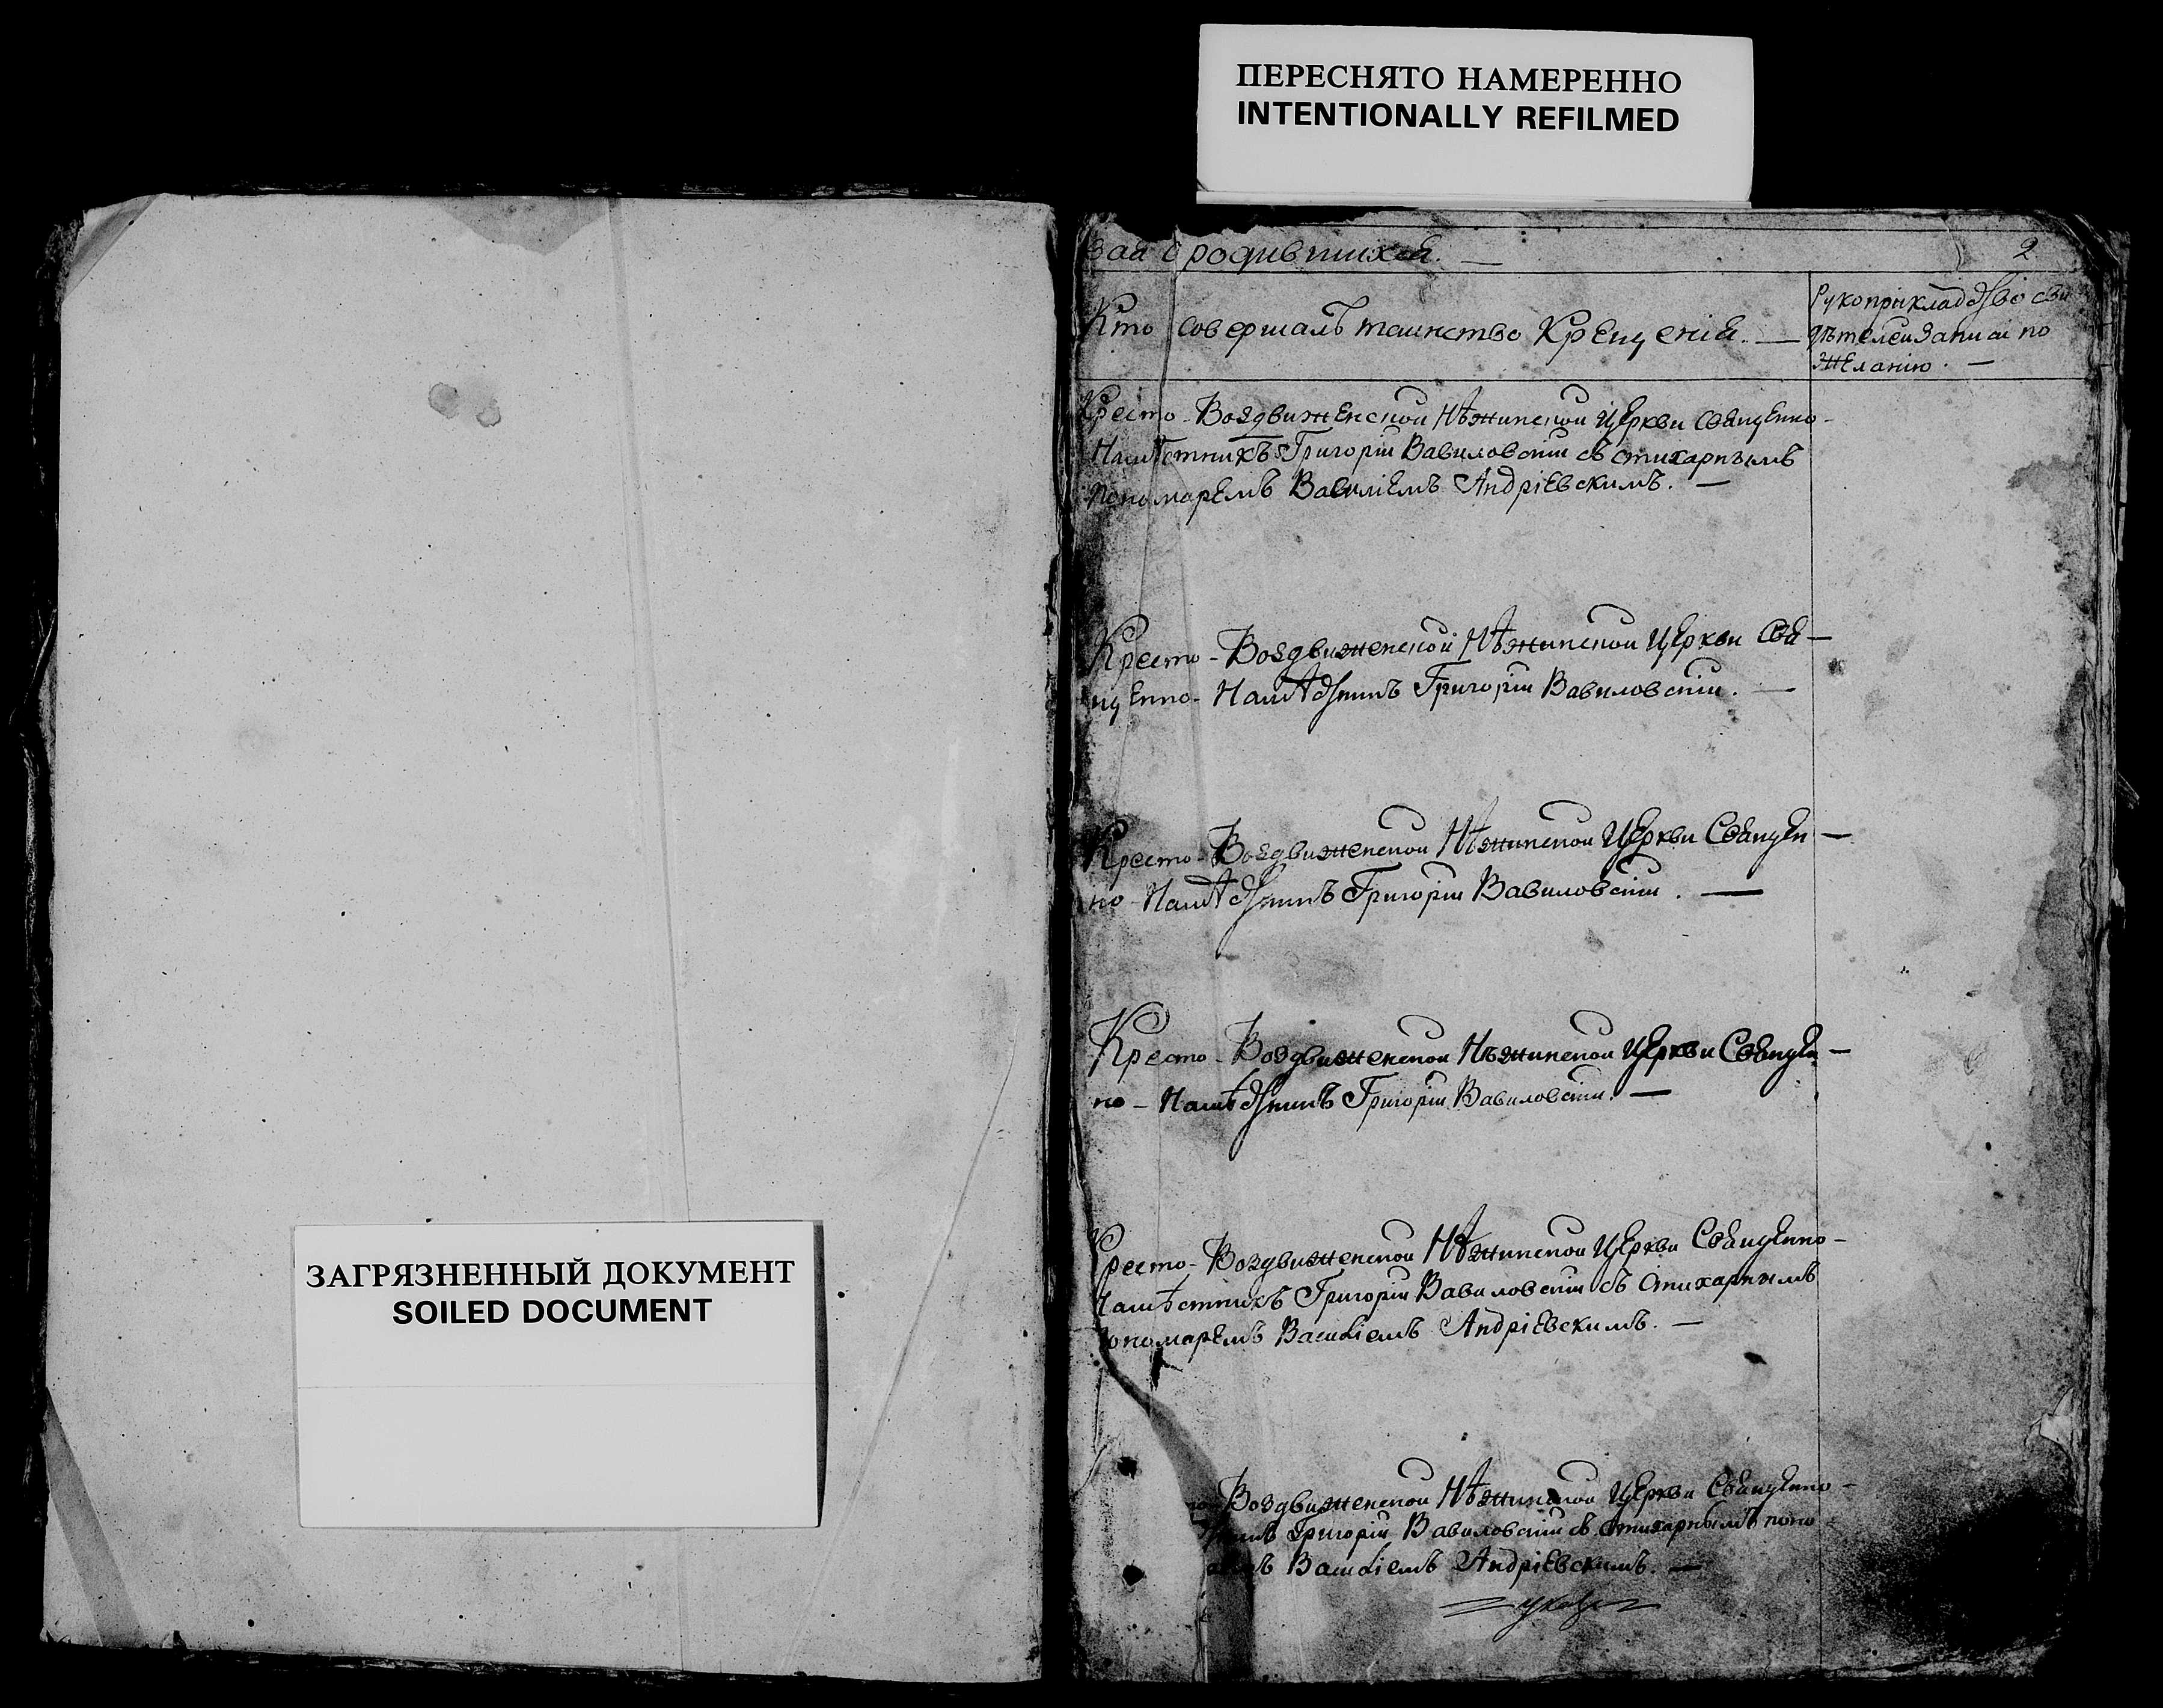 ПЕРЕСНЯТО НАМЕРЕННО
INTENTIONALLY REFILMED
о родившихся. —
2
Кто совершалъ таинство Крещенія. —
Рукоприкладство сви
дѣтелей записи по
желанію. —
Кресто-Воздвиженской Нѣжинской Церкви Священно-
Намѣстникъ Григорій Вавиловскій съ стихарнымъ
пономаремъ Василіемъ Андріевскимъ. —
Кресто-Воздвиженской Нѣжинской Церкви Свя-
щенно-Намѣстникъ Григорій Вавиловскій. —
Кресто-Воздвиженской Нѣжинской Церкви Священ-
но-Намѣстникъ Григорій Вавиловскій. —
Кресто-Воздвиженской Нѣжинской Церкви Священ-
но-Намѣстникъ Григорій Вавиловскій. —
Кресто-Воздвиженской Нѣжинской Церкви Священно-
Намѣстникъ Григорій Вавиловскій съ Стихарнымъ
Пономаремъ Василіемъ Андріевскимъ. —
Воздвиженской Нѣжинской Церкви Священно-
Григорій Вавиловскій съ Стихарнымъ поно-
Василіемъ Андріевскимъ. —
ЗАГРЯЗНЕННЫЙ ДОКУМЕНТ
SOILED DOCUMENT